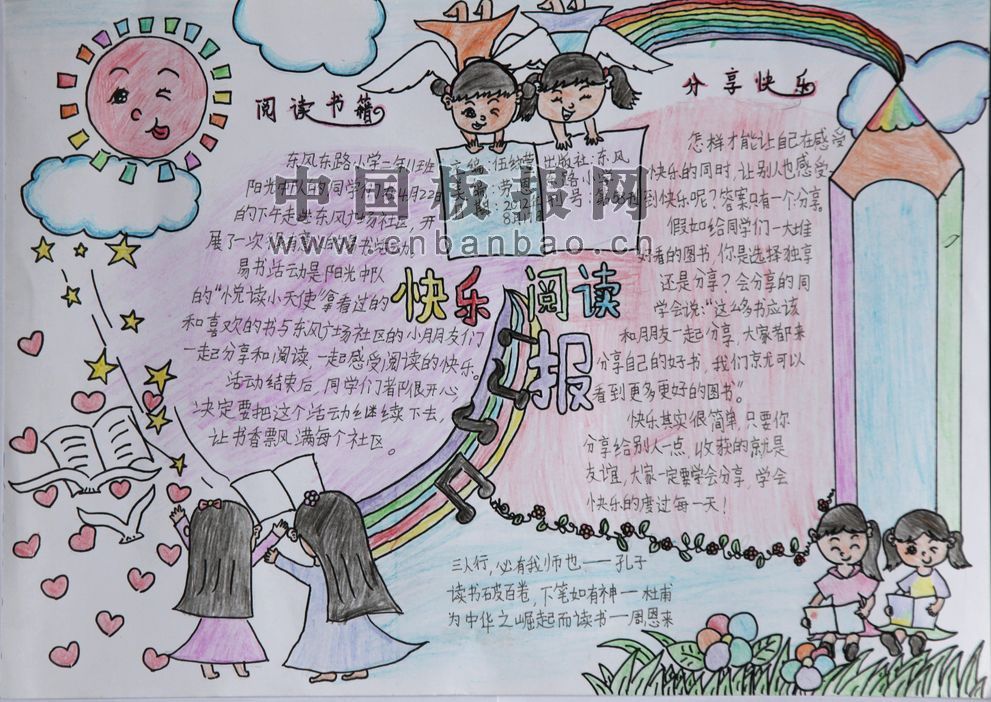 阅读书籍
分享快乐
东风东路小学二年11班
阳光中队的同学们在4月22日
的下午走进东风广场社区，开
展了一次
易书活动是阳光中队
的“悦读小天使”拿着过的
和喜欢的书与东风广场社区的小朋友们
一起分享和阅读，一起感受阅读的快乐。
活动结束后，同学们都很开心
决定要把这个活动继续下去，
让书香票风满每个社区。
主编：伍
出版社：东风
中国板报网
www.cnbanbao.cn
快乐阅读
报
怎样才能让自己在感受
快乐的同时，让别人也感受
到快乐呢？答案只有一个分享。
假如给同学们一大堆
好看的图书，你是选择独享
还是分享？会分享的同
学会说：“这么多书应该
和朋友一起分享，大家都来
分享自己的好书，我们京尤可以
看到更多更好的图书”。
快乐其实很简单，只要你
分享给别人一点，收获的就是
友谊，大家一定要学会分享，学会
快乐的度过每一天！
三人行，必有我师也——孔子
读书破百卷，下笔如有神—杜甫
为中华之崛起而读书—周恩来